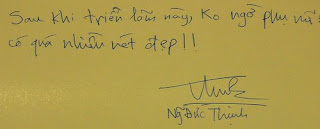 Sau khi triển lãm này, ko ngờ phụ nữ
có quá nhiều nét đẹp!!
Ng Đức Thinh